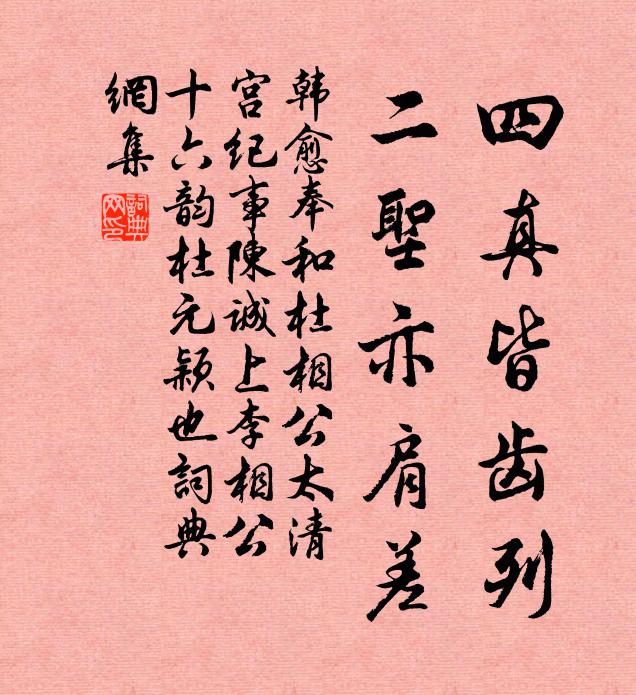 四真皆齿列
二聖亦肩差
韓愈奉和杜相公太清
宮紀事陳誠上李相公
十六韵杜元颖也詞典
網集
詞典网印